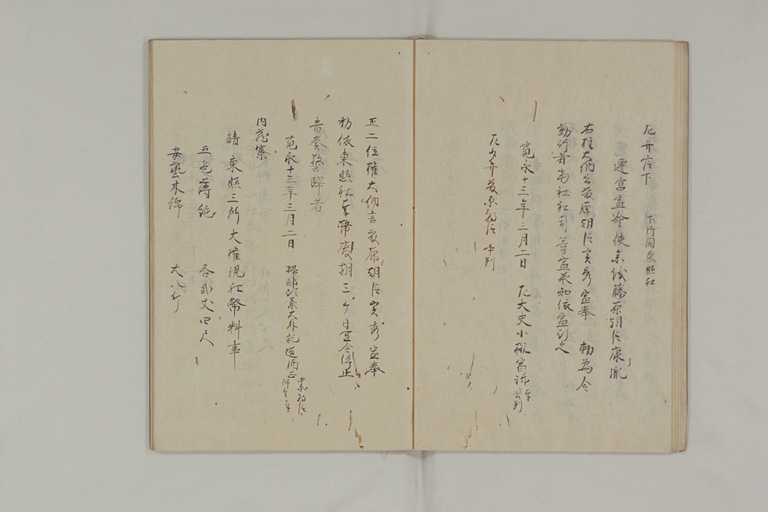 左弁官下　下野国東照社
遷宮宣命使参議藤原朝臣康胤
右権大納言藤原朝臣実秀宣奉　勅為令
勤行者当社社司等宣承知依宣行之
寛永十三年三月二日　左大史小槻宿祢 在判
左少弁藤原朝臣 在判
正二位権大納言藤原朝臣実秀宣奉
勅依東照社奉幣廃朝三ヶ日宜令停止
音奏警蹕者
寛永十三年三月二日
内蔵寮
請東照三所大権現社幣料事
五色薄絁　各弐丈四尺
安芸木綿　大八斤